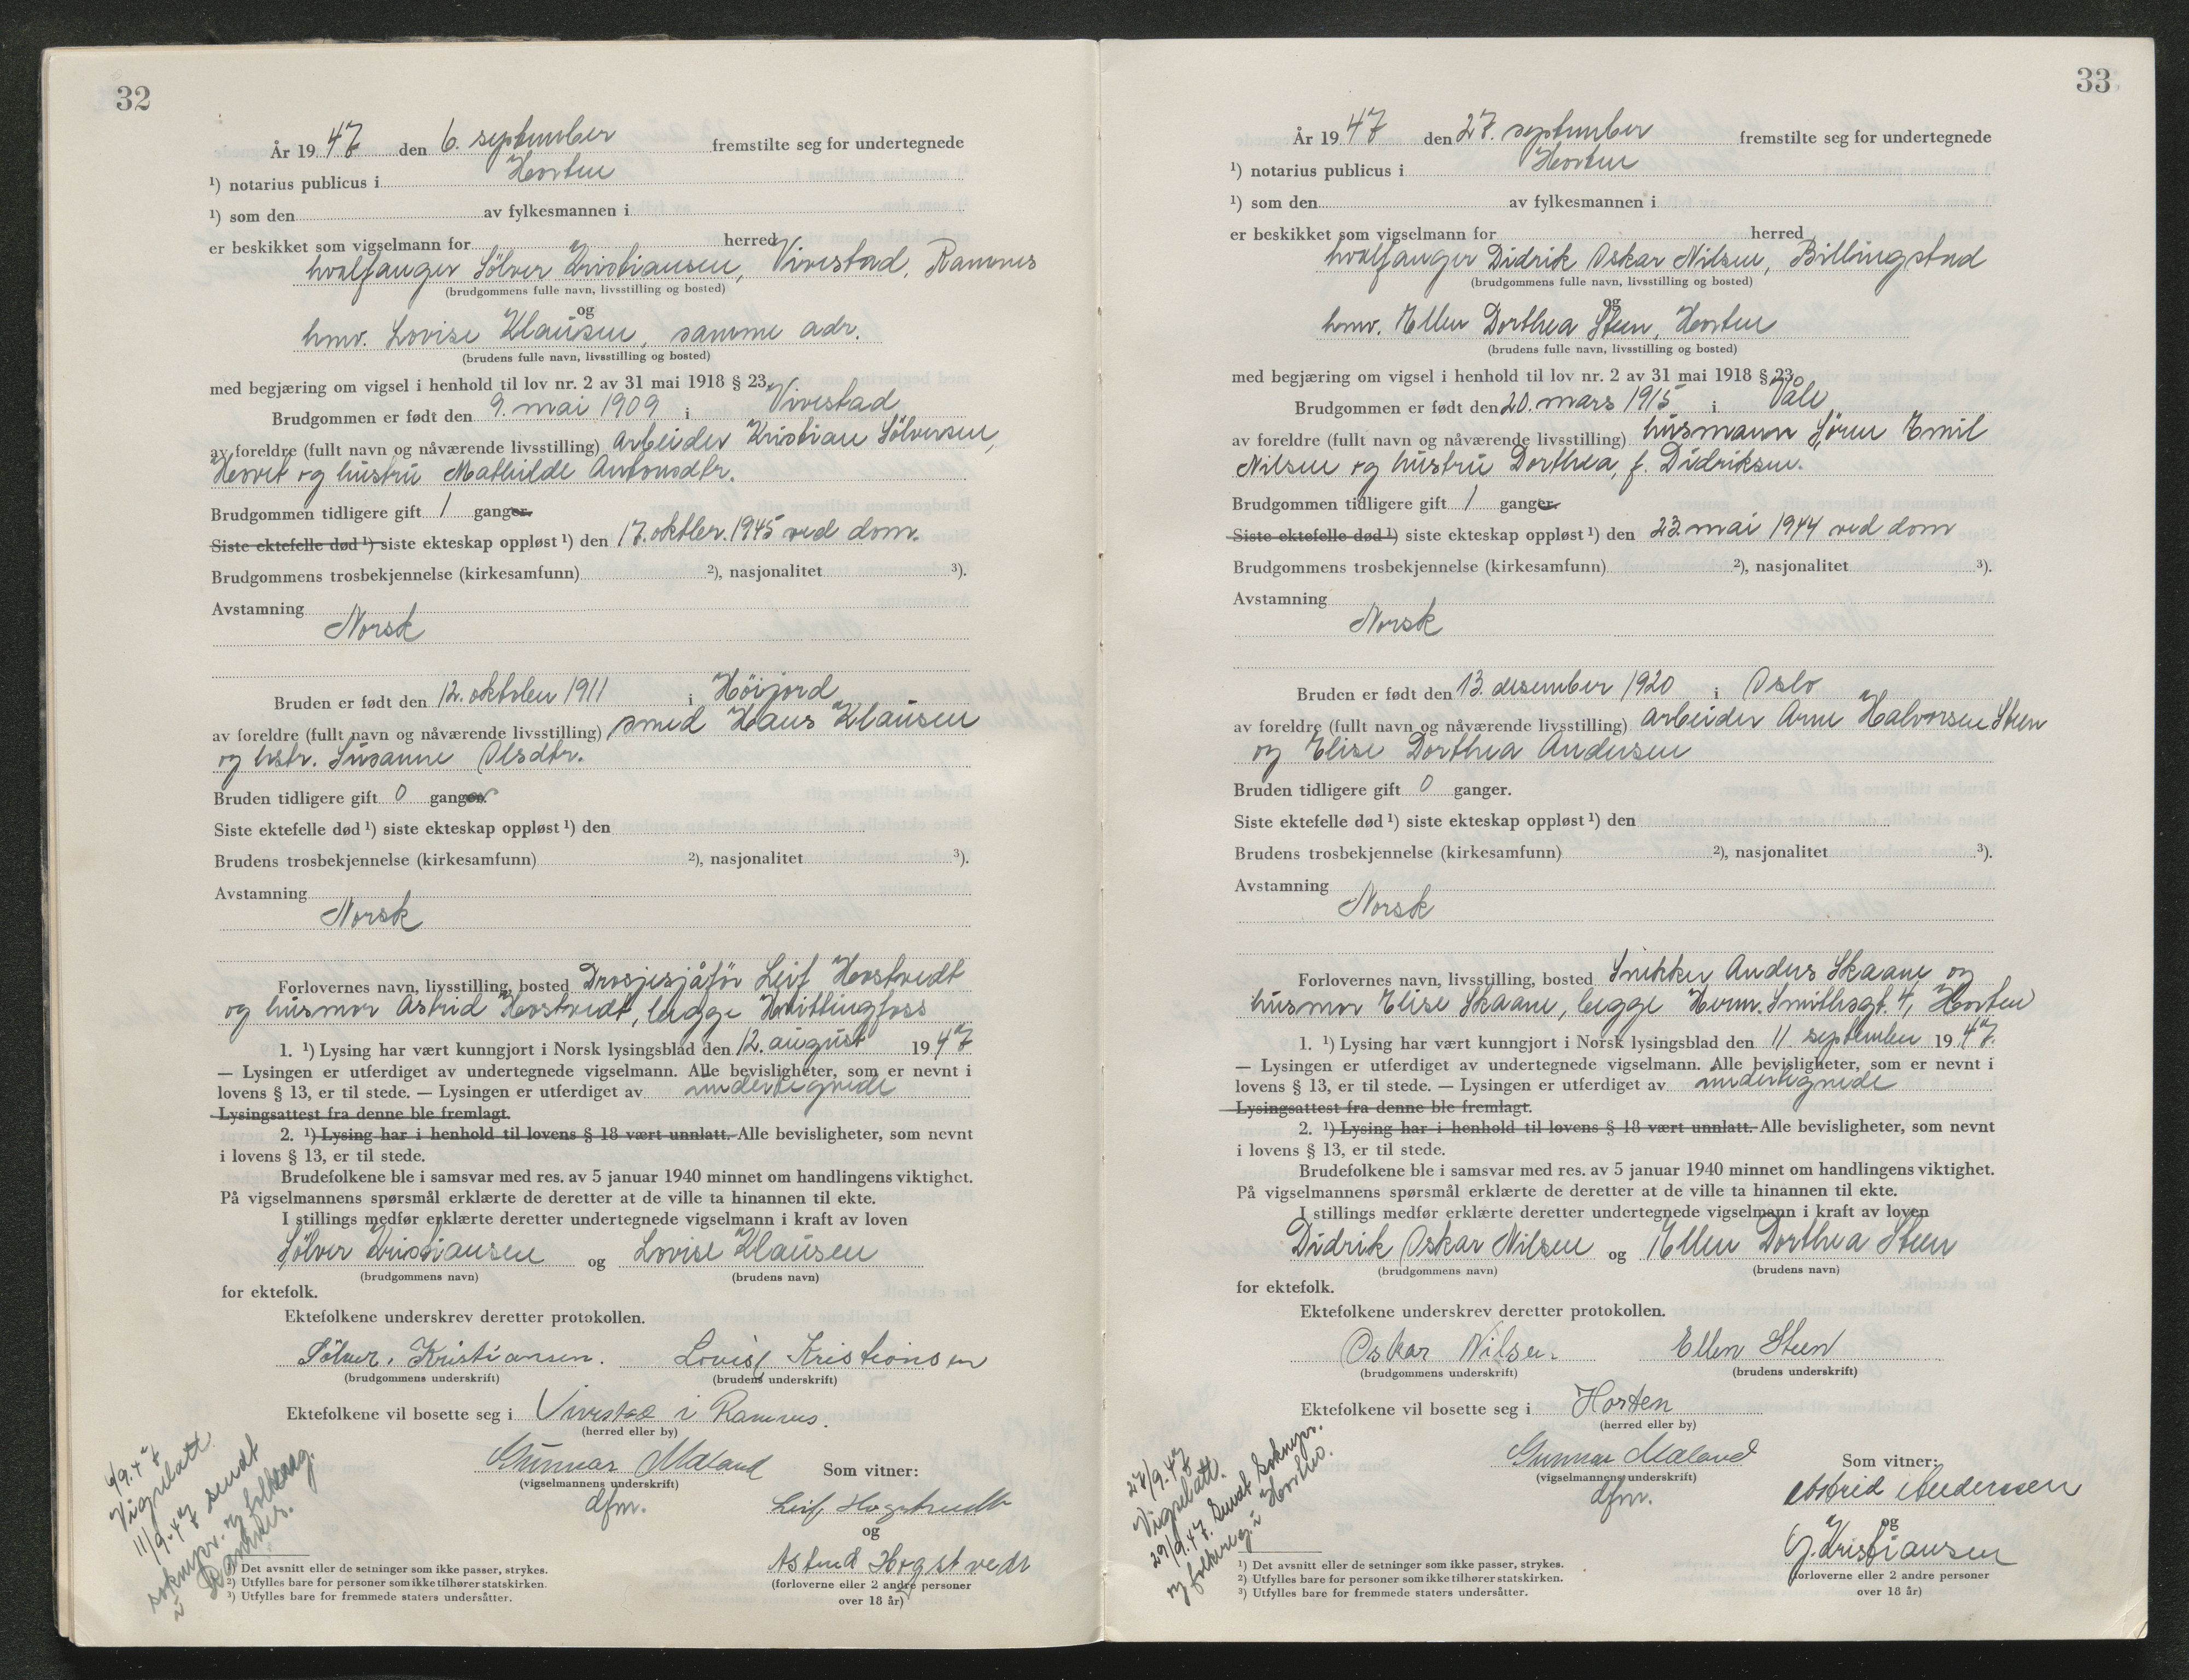 32
År 19 47 den 6. september fremstilte seg for undertegnede
¹) notarius publicus i Horten
¹) som den av fylkesmannen i
er beskikket som vigselmann for herred
hvalfanger Sölver Kristiansen, Vivestad, Ramnes
(brudgommens fulle navn, livsstilling og bosted)
og
hmv. Lovise Klausen, samme adr.
(brudens fulle navn, livsstilling og bosted)
med begjæring om vigsel i henhold til lov nr. 2 av 31 mai 1918 § 23.
Brudgommen er født den 9. mai 1909 i Vivestad
av foreldre (fullt navn og nåværende livsstilling) arbeider Kristian Sölversen,
Hovet og hustru Mathilde Antonsdtr.
Brudgommen tidligere gift 1 ganger.
Siste ektefelle død ¹) siste ekteskap oppløst ¹) den 17. oktber. 1945 ved dom.
Brudgommens trosbekjennelse (kirkesamfunn) ²), nasjonalitet ³).
Avstamning
Norsk
Bruden er født den 12. oktober 1911 i Höijord
av foreldre (fullt navn og nåværende livsstilling) smed Hans Klausen
og hstr. Susanne Olsdtr.
Bruden tidligere gift 0 ganger.
Siste ektefelle død ¹) siste ekteskap oppløst ¹) den
Brudens trosbekjennelse (kirkesamfunn) ²), nasjonalitet ³).
Avstamning
Norsk
Forlovernes navn, livsstilling, bosted Drosjesjåför Leif Hostvedt
og husmor Astrid Hostvedt, begge Hvittingfoss
1. ¹) Lysing har vært kunngjort i Norsk lysingsblad den 12. august 19 47
— Lysingen er utferdiget av undertegnede vigselmann. Alle bevisligheter, som er nevnt i
lovens § 13, er til stede. — Lysingen er utferdiget av undertegnede
Lysingsattest fra denne ble fremlagt.
2. ¹) Lysing har i henhold til lovens § 18 vært unnlatt. Alle bevisligheter, som nevnt
i lovens § 13, er til stede.
Brudefolkene ble i samsvar med res. av 5 januar 1940 minnet om handlingens viktighet.
På vigselmannens spørsmål erklærte de deretter at de ville ta hinannen til ekte.
I stillings medfør erklærte deretter undertegnede vigselmann i kraft av loven
Sölver Kristiansen og Lovise Klausen
(brudgommens navn) (brudens navn)
for ektefolk.
Ektefolkene underskrev deretter protokollen.
Sölver. Kristiansen. Lovise Kristiansen
(brudgommens underskrift) (brudens underskrift)
Ektefolkene vil bosette seg i Vivestad i Ramnes.
(herred eller by)
Gunnar Mæland Som vitner:
(vigselmannens underskrift)
dfm.
Leif Hogstvedt
og
Astrid Hogstvedt
(forloverne eller 2 andre personer
over 18 år)
6/9.47
Vigselatt.
11/9.47 sendt
soknepr. og folkereg.
i Ramnes.
¹) Det avsnitt eller de setninger som ikke passer, strykes.
²) Utfylles bare for personer som ikke tilhører statskirken.
³) Utfylles bare for fremmede staters undersåtter.
33
År 19 47 den 27. september fremstilte seg for undertegnede
¹) notarius publicus i Horten
¹) som den av fylkesmannen i
er beskikket som vigselmann for herred
hvalfanger Didrik Oskar Nilsen, Billingstad
(brudgommens fulle navn, livsstilling og bosted)
og
hmv. Ellen Dorthea Steen, Horten
(brudens fulle navn, livsstilling og bosted)
med begjæring om vigsel i henhold til lov nr. 2 av 31 mai 1918 § 23.
Brudgommen er født den 20. mars 1915 i Våle
av foreldre (fullt navn og nåværende livsstilling) husmann Sören Emil
Nilsen og hustru Dorthea, f. Didriksen.
Brudgommen tidligere gift 1 ganger.
Siste ektefelle død ¹) siste ekteskap oppløst ¹) den 23. mai 1944 ved dom
Brudgommens trosbekjennelse (kirkesamfunn) ²), nasjonalitet ³).
Avstamning
Norsk
Bruden er født den 13. desember 1920 i Oslo
av foreldre (fullt navn og nåværende livsstilling) arbeider Arne Halvorsen Steen
og Elise Dorthea Andersen
Bruden tidligere gift 0 ganger.
Siste ektefelle død ¹) siste ekteskap oppløst ¹) den
Brudens trosbekjennelse (kirkesamfunn) ²), nasjonalitet ³).
Avstamning
Norsk
Forlovernes navn, livsstilling, bosted Snekker Anders Skaane og
husmor Elise Skaane, begge Herm. Smithsgt. 4, Horten
1. ¹) Lysing har vært kunngjort i Norsk lysingsblad den 11 september 19 47.
— Lysingen er utferdiget av undertegnede vigselmann. Alle bevisligheter, som er nevnt i
lovens § 13, er til stede. — Lysingen er utferdiget av undertegnede
Lysingsattest fra denne ble fremlagt.
2. ¹) Lysing har i henhold til lovens § 18 vært unnlatt. Alle bevisligheter, som nevnt
i lovens § 13, er til stede.
Brudefolkene ble i samsvar med res. av 5 januar 1940 minnet om handlingens viktighet.
På vigselmannens spørsmål erklærte de deretter at de ville ta hinannen til ekte.
I stillings medfør erklærte deretter undertegnede vigselmann i kraft av loven
Didrik Oskar Nilsen og Ellen Dorthea Steen
(brudgommens navn) (brudens navn)
for ektefolk.
Ektefolkene underskrev deretter protokollen.
Oskar Nilsen. Ellen Steen
(brudgommens underskrift) (brudens underskrift)
Ektefolkene vil bosette seg i Horten
(herred eller by)
Gunnar Mæland Som vitner:
(vigselmannens underskrift)
dfm.
Astrid Anderssen
og
G. Kristiansen
(forloverne eller 2 andre personer
over 18 år)
27/9.47
Vigselatt.
29/9.47. Sendt soknepr.
og folkereg. i Horten.
¹) Det avsnitt eller de setninger som ikke passer, strykes.
²) Utfylles bare for personer som ikke tilhører statskirken.
³) Utfylles bare for fremmede staters undersåtter.